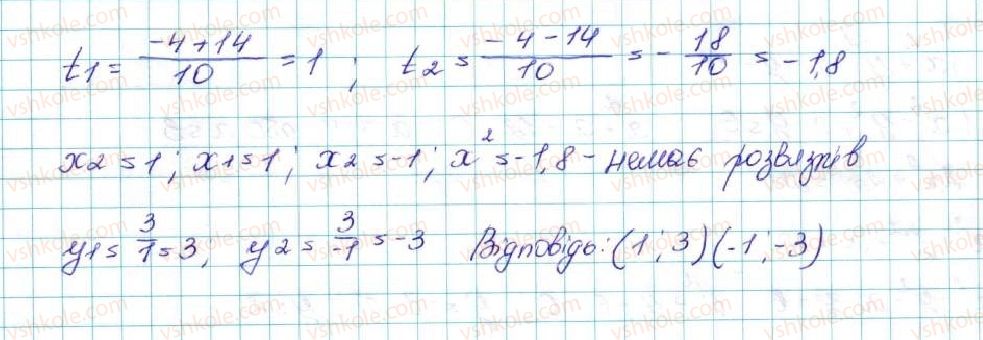 t1 = (-4+14)/10 = 1 ; t2 = (-4-14)/10 = -18/10 = -1,8
x2 = 1 ; x1 = 1 ; x2 = -1 ; x² = -1,8 - немає розвязків
y1 = 3/1 = 3, y2 = 3/-1 = -3 Відповідь: (1 ; 3) (-1 ; -3)